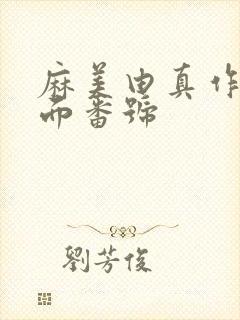 麻美由真作
而番號
劉芳俊